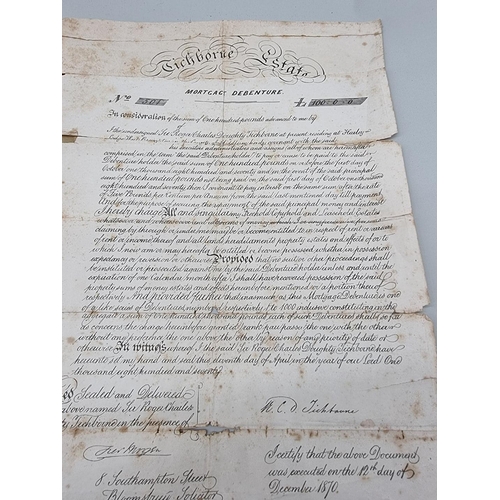 Tichborne Estate
MORTGAGE DEBENTURE.
No. 501 £ 100-0-0
In consideration of the sum of One hundred pounds advanced to me by
I the undersigned Sir Roger Charles Doughty Tichborne at present residing at Harley
Lodge
his executors administrators and assigns all of whom are hereinafter
comprised in the term "the said Debentureholder" to pay or cause to be paid to the said
Debentureholder the said sum of One hundred pounds on or before the first day of
October one thousand eight hundred and seventy and in the event of the said principal
sum of One hundred pounds not being paid on the said first day of October One thousand
eight hundred and seventy then I covenant to pay interest on the same sum after the rate
of Five Pounds per Centum per Annum from the said last mentioned day till payment
And for the purpose of securing the repayment of the said principal money and interest
I hereby charge All and singular my Freehold Copyhold and Leasehold Estates
whatsoever and wheresoever
claiming by through or under me may be or become entitled to in respect of rent or arrears
of rent or income thereof and all lands hereditaments property estates and effects of or to
which I now am or may hereafter be entitled or become possessed whether in possession
expectancy reversion or otherwise Provided that no suit or other proceedings shall
be instituted or prosecuted against me by the said Debenture holder unless and until the
expiration of one Calendar month after I shall have recovered possession of the said
property sums of money estates and effects hereinbefore mentioned or a portion thereof
respectively And provided further that inasmuch as this Mortgage Debenture is one
of a like series of Debentures numbered respectively 1 to 1000 inclusive constituting in the
aggregate a sum of One Hundred Thousand pounds each of such Debentures shall so far
as concerns the charge hereinbefore granted rank pari passu the one with the other
without any preference the one above the other by reason of any priority of date or
otherwise. In witness whereof I the said Sir Roger Charles Doughty Tichborne have
hereunto set my hand and seal this eleventh day of April in the year of our Lord One
thousand eight hundred and seventy
Sealed and Delivered
above named Sir Roger Charles
Tichborne in the presence of
R. C. D. Tichborne
8 Southampton Street
Bloomsbury Solicitor
I certify that the above Document
was executed on the 12th day of
December 1870.